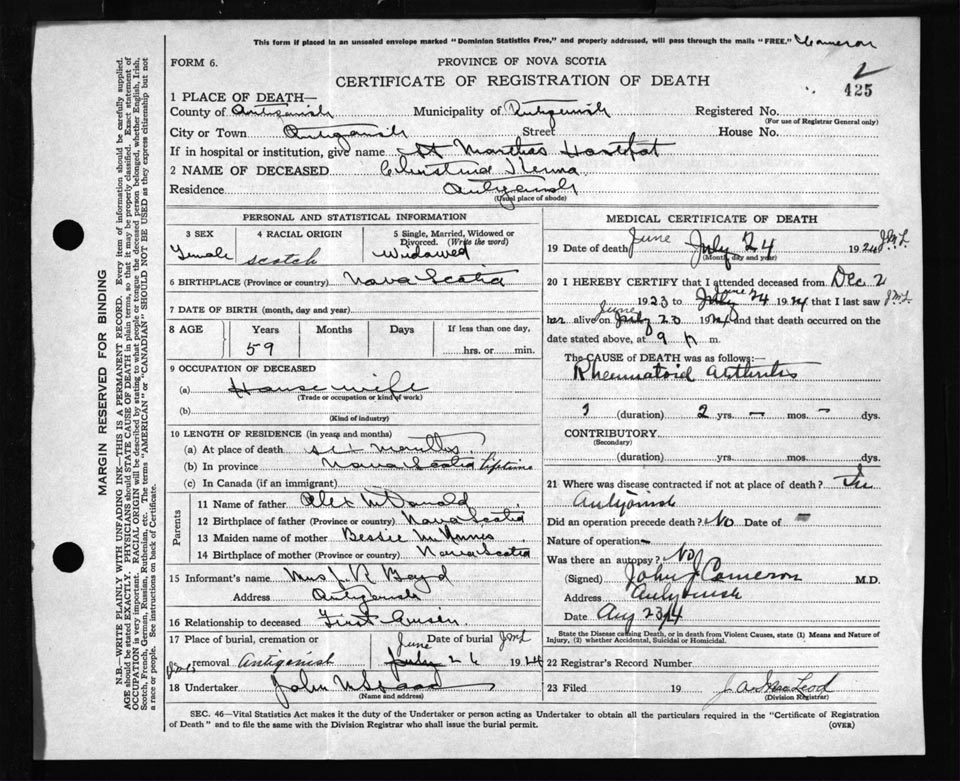 This form if placed in an unsealed envelope marked "Dominion Statistics Free," and properly addressed, will pass through the mails "FREE." Cameron
FORM 6.
PROVINCE OF NOVA SCOTIA
CERTIFICATE OF REGISTRATION OF DEATH
2
425
1 PLACE OF DEATH—
County of Antigonish Municipality of Antigonish Registered No.
(For use of Registrar General only)
City or Town Antigonish Street House No.
If in hospital or institution, give name St Marthas
2 NAME OF DECEASED Christina
Residence Antigonish
(Usual place of abode)
PERSONAL AND STATISTICAL INFORMATION
3 SEX 4 RACIAL ORIGIN 5 Single, Married, Widowed or Divorced. (Write the word)
Female Scotch Widowed
6 BIRTHPLACE (Province or country) Nova Scotia
7 DATE OF BIRTH (month, day and year)
8 AGE Years Months Days If less than one day,
59 hrs. or min.
9 OCCUPATION OF DECEASED
(a) Housewife
(Trade or occupation or kind of work)
(b)
(Kind of industry)
10 LENGTH OF RESIDENCE (in years and months)
(a) At place of death six months
(b) In province Nova Scotia lifetime
(c) In Canada (if an immigrant)
Parents
11 Name of father Alex McDonald
12 Birthplace of father (Province or country) Nova Scotia
13 Maiden name of mother Bessie McInnis
14 Birthplace of mother (Province or country) Nova Scotia
15 Informant's name Mrs J. R Boyd
Address Antigonish
16 Relationship to deceased First Cousin
17 Place of burial, cremation or Date of burial June J.M.L.
removal Antigonish July 26 1924
18 Undertaker John
(Name and address)
MEDICAL CERTIFICATE OF DEATH
19 Date of death June July 24 1924
(Month, day and year)
20 I HEREBY CERTIFY that I attended deceased from Dec 2
1923 to June July 24 1924 that I last saw
her alive on June July 23 1924 and that death occurred on the
date stated above, at 9 p m.
The CAUSE OF DEATH was as follows:
Rheumatoid Arthritis
(duration) 2 yrs. — mos. — dys.
CONTRIBUTORY
(Secondary)
(duration) yrs. mos. dys.
21 Where was disease contracted if not at place of death? In
Antigonish
Did an operation precede death? No Date of —
Nature of operation —
Was there an autopsy? No
(Signed) John J Cameron M.D.
Address Antigonish
Date Aug 23/24
State the Disease causing Death, or in death from Violent Causes, state (1) Means and Nature of Injury, (2) whether Accidental, Suicidal or Homicidal.
22 Registrar's Record Number
23 Filed 19 J. A. MacLeod
(Division Registrar)
SEC. 46—Vital Statistics Act makes it the duty of the Undertaker or person acting as Undertaker to obtain all the particulars required in the "Certificate of Registration
of Death" and to file the same with the Division Registrar who shall issue the burial permit. (OVER)
MARGIN RESERVED FOR BINDING
N.B.—WRITE PLAINLY WITH UNFADING INK—THIS IS A PERMANENT RECORD. Every item of information should be carefully supplied.
AGE should be stated EXACTLY. PHYSICIANS should STATE CAUSE OF DEATH in plain terms, so that it may be properly classified. Exact statement of
OCCUPATION is very important. RACIAL ORIGIN will be described by stating to what people or tongue the deceased person belonged, whether English, Irish,
Scotch, French, German, Russian, Ruthenian, etc. The terms "AMERICAN" or "CANADIAN" SHOULD NOT BE USED as they express citizenship but not
a race or people. See instructions on back of Certificate.